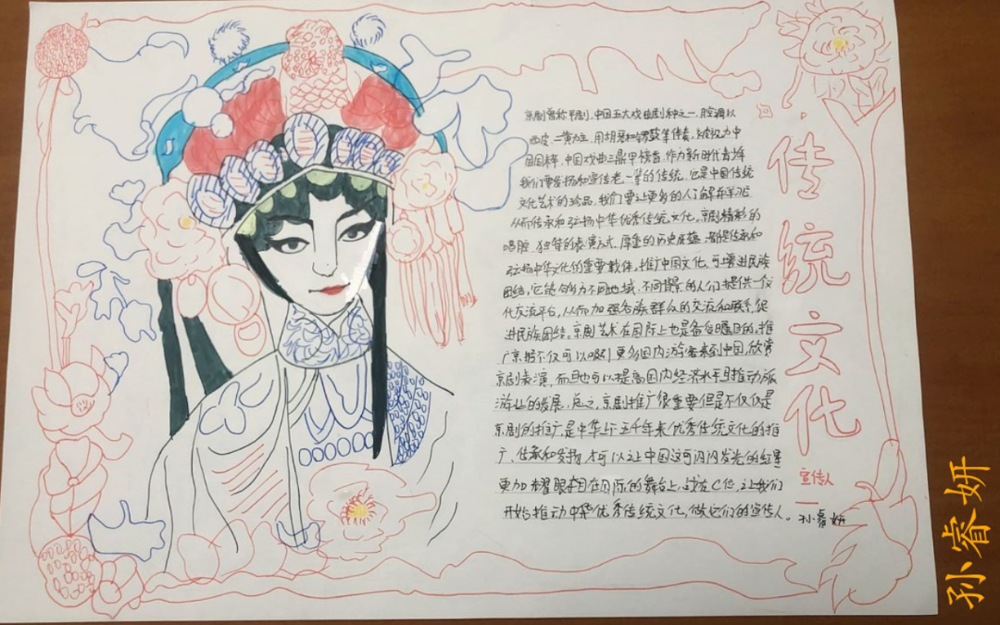 传统文化
京剧曾称平剧,中国五大戏曲剧种之一,腔调以
西皮、二黄为主,用胡琴和锣鼓等伴奏,被视为中
国国粹,中国戏曲三鼎甲榜首,作为新时代青年
我们要发扬和宣传老一辈的传统,它是中国传统
文化艺术的珍品,我们要让更多的人了解
从而传承和弘扬中华优秀传统文化。京剧精彩的
唱腔,独特的表演方式,厚重的历史底蕴,都是传承和
弘扬中华文化的重要载体。推广中国文化,可增进民族
团结,它能够为不同地域、不同背景的人们提供一个
化交流平台,从而加强各族群众的交流和联系,促
进民族团结。京剧艺术在国际上也是备受瞩目的,推
广京剧不仅可以吸引更多国内游客来到中国欣赏
京剧表演,而且也可以提高国内经济水平且推动旅
游业的发展,总之,京剧推广很重要但是不仅仅是
京剧的推广,是中华上下五千年来优秀传统文化的推
广、传承和发扬,才可以让中国这颗闪闪发光的红星
更加耀眼夺目在国际的舞台上,站在C位,让我们
开始推动中华优秀传统文化,做它们的宣传人。
宣传人
孙睿妍
孙睿妍